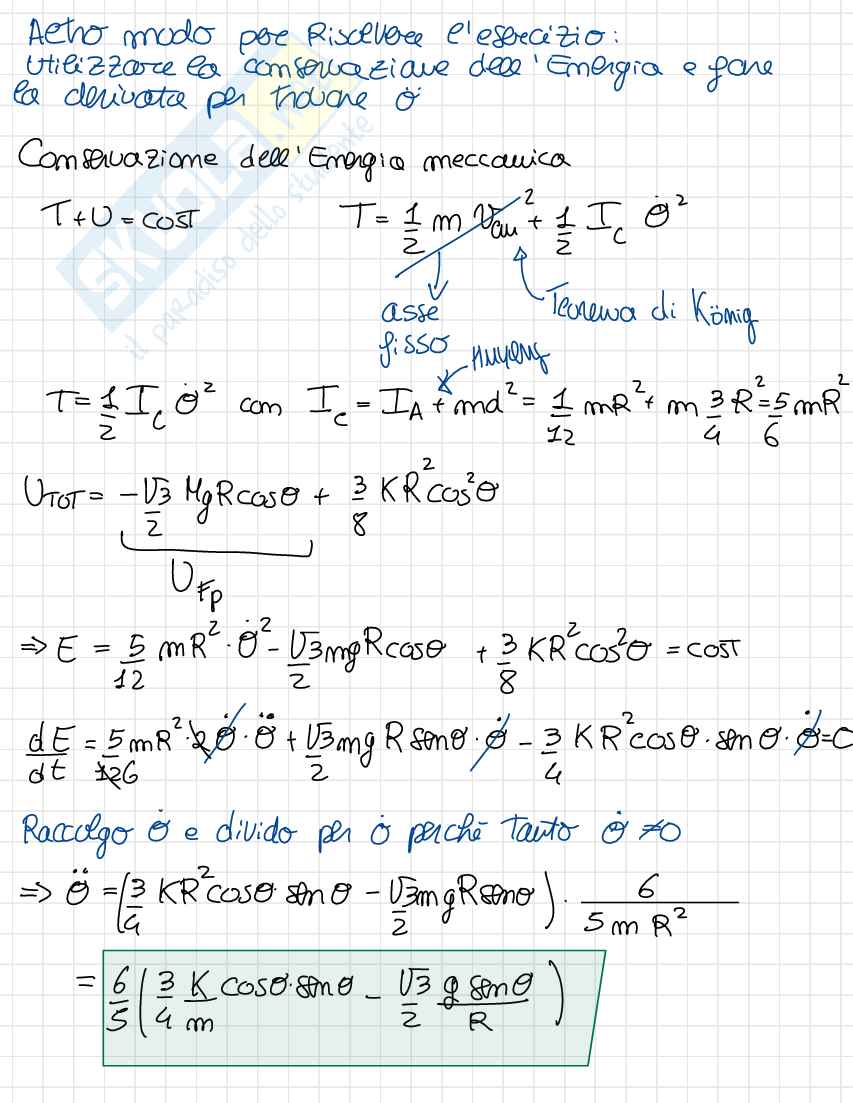 Altro modo per Risolvere l'esercizio:
Utilizzare la conservazione dell'Energia e fare
la derivata per trovare θ̈
Conservazione dell'Energia meccanica
T+U = cost T = 1/2 m v_cm² + 1/2 I_c θ̇²
asse
fisso
Teorema di König
Huygens
T = 1/2 I_c θ̇² con I_c = I_A + md² = 1/12 mR² + m 3/4 R² = 5/6 mR²
U_TOT = -√3/2 MgRcosθ + 3/8 KR²cos²θ
U_Fp
⇒ E = 5/12 mR²·θ̇² - √3/2 mgRcosθ + 3/8 KR²cos²θ = cost
dE/dt = 5/12 6 mR²·2θ̇·θ̈ + √3/2 mg R senθ·θ̇ - 3/4 KR²cosθ·senθ·θ̇ = 0
Raccolgo θ̇ e divido per θ̇ perché tanto θ̇ ≠ 0
⇒ θ̈ = (3/4 KR²cosθ senθ - √3/2 mgRsenθ) · 6/5mR²
= 6/5 (3/4 K/m cosθ·senθ - √3/2 g senθ/R)
SKUOLA.net
il paradiso dello studente